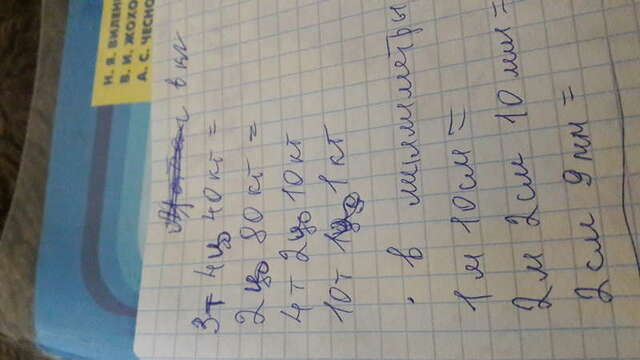 Н. Я. ВИЛЕН
В. И. ЖОХО
А. С. ЧЕСНО
в кг
3т 4ц 40кг =
2ц 80кг =
4т 2ц 10кг
10т 1ц 1кг
. в миллиметры
1м 10см =
2м 2см 10мм =
2см 9мм =